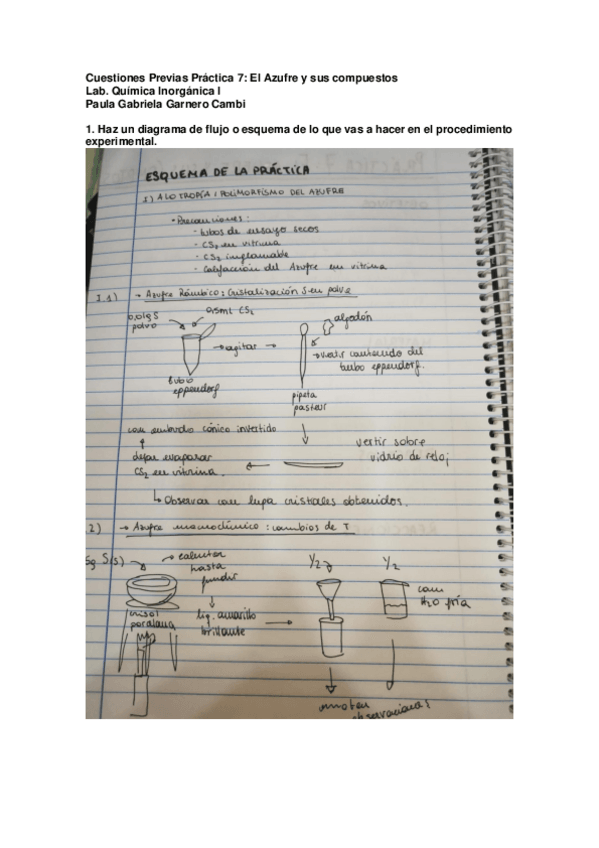 Cuestiones Previas Práctica 7: El Azufre y sus compuestos
Lab. Química Inorgánica I
Paula Gabriela Garnero Cambi
1. Haz un diagrama de flujo o esquema de lo que vas a hacer en el procedimiento
experimental.
ESQUEMA DE LA PRÁCTICA
1) ALOTROPÍA / POLIMORFISMO DEL AZUFRE
• Precauciones:
- tubos de ensayo secos
- CS2 en vitrina
- CS2 inflamable
- Calefacción del Azufre en vitrina
1.1) → Azufre Rómbico: Cristalización S en polvo
0,01g S
polvo
0,5ml CS2
algodón
→ agitar →
→ vertir contenido del
tubo eppendorf.
tubo
eppendorf
pipeta
pasteur
com embudo cónico invertido
vertir sobre
vidrio de reloj
dejar evaporar
CS2 en vitrina.
↳ Observar com lupa cristales obtenidos.
2) → Azufre monoclínico: cambios de T
5g S(s)
→ calentar
hasta
fundir
1/2
1/2
com
H2O fría
crisol
porcelana
liq. amarillo
brillante
anotar
observaciones